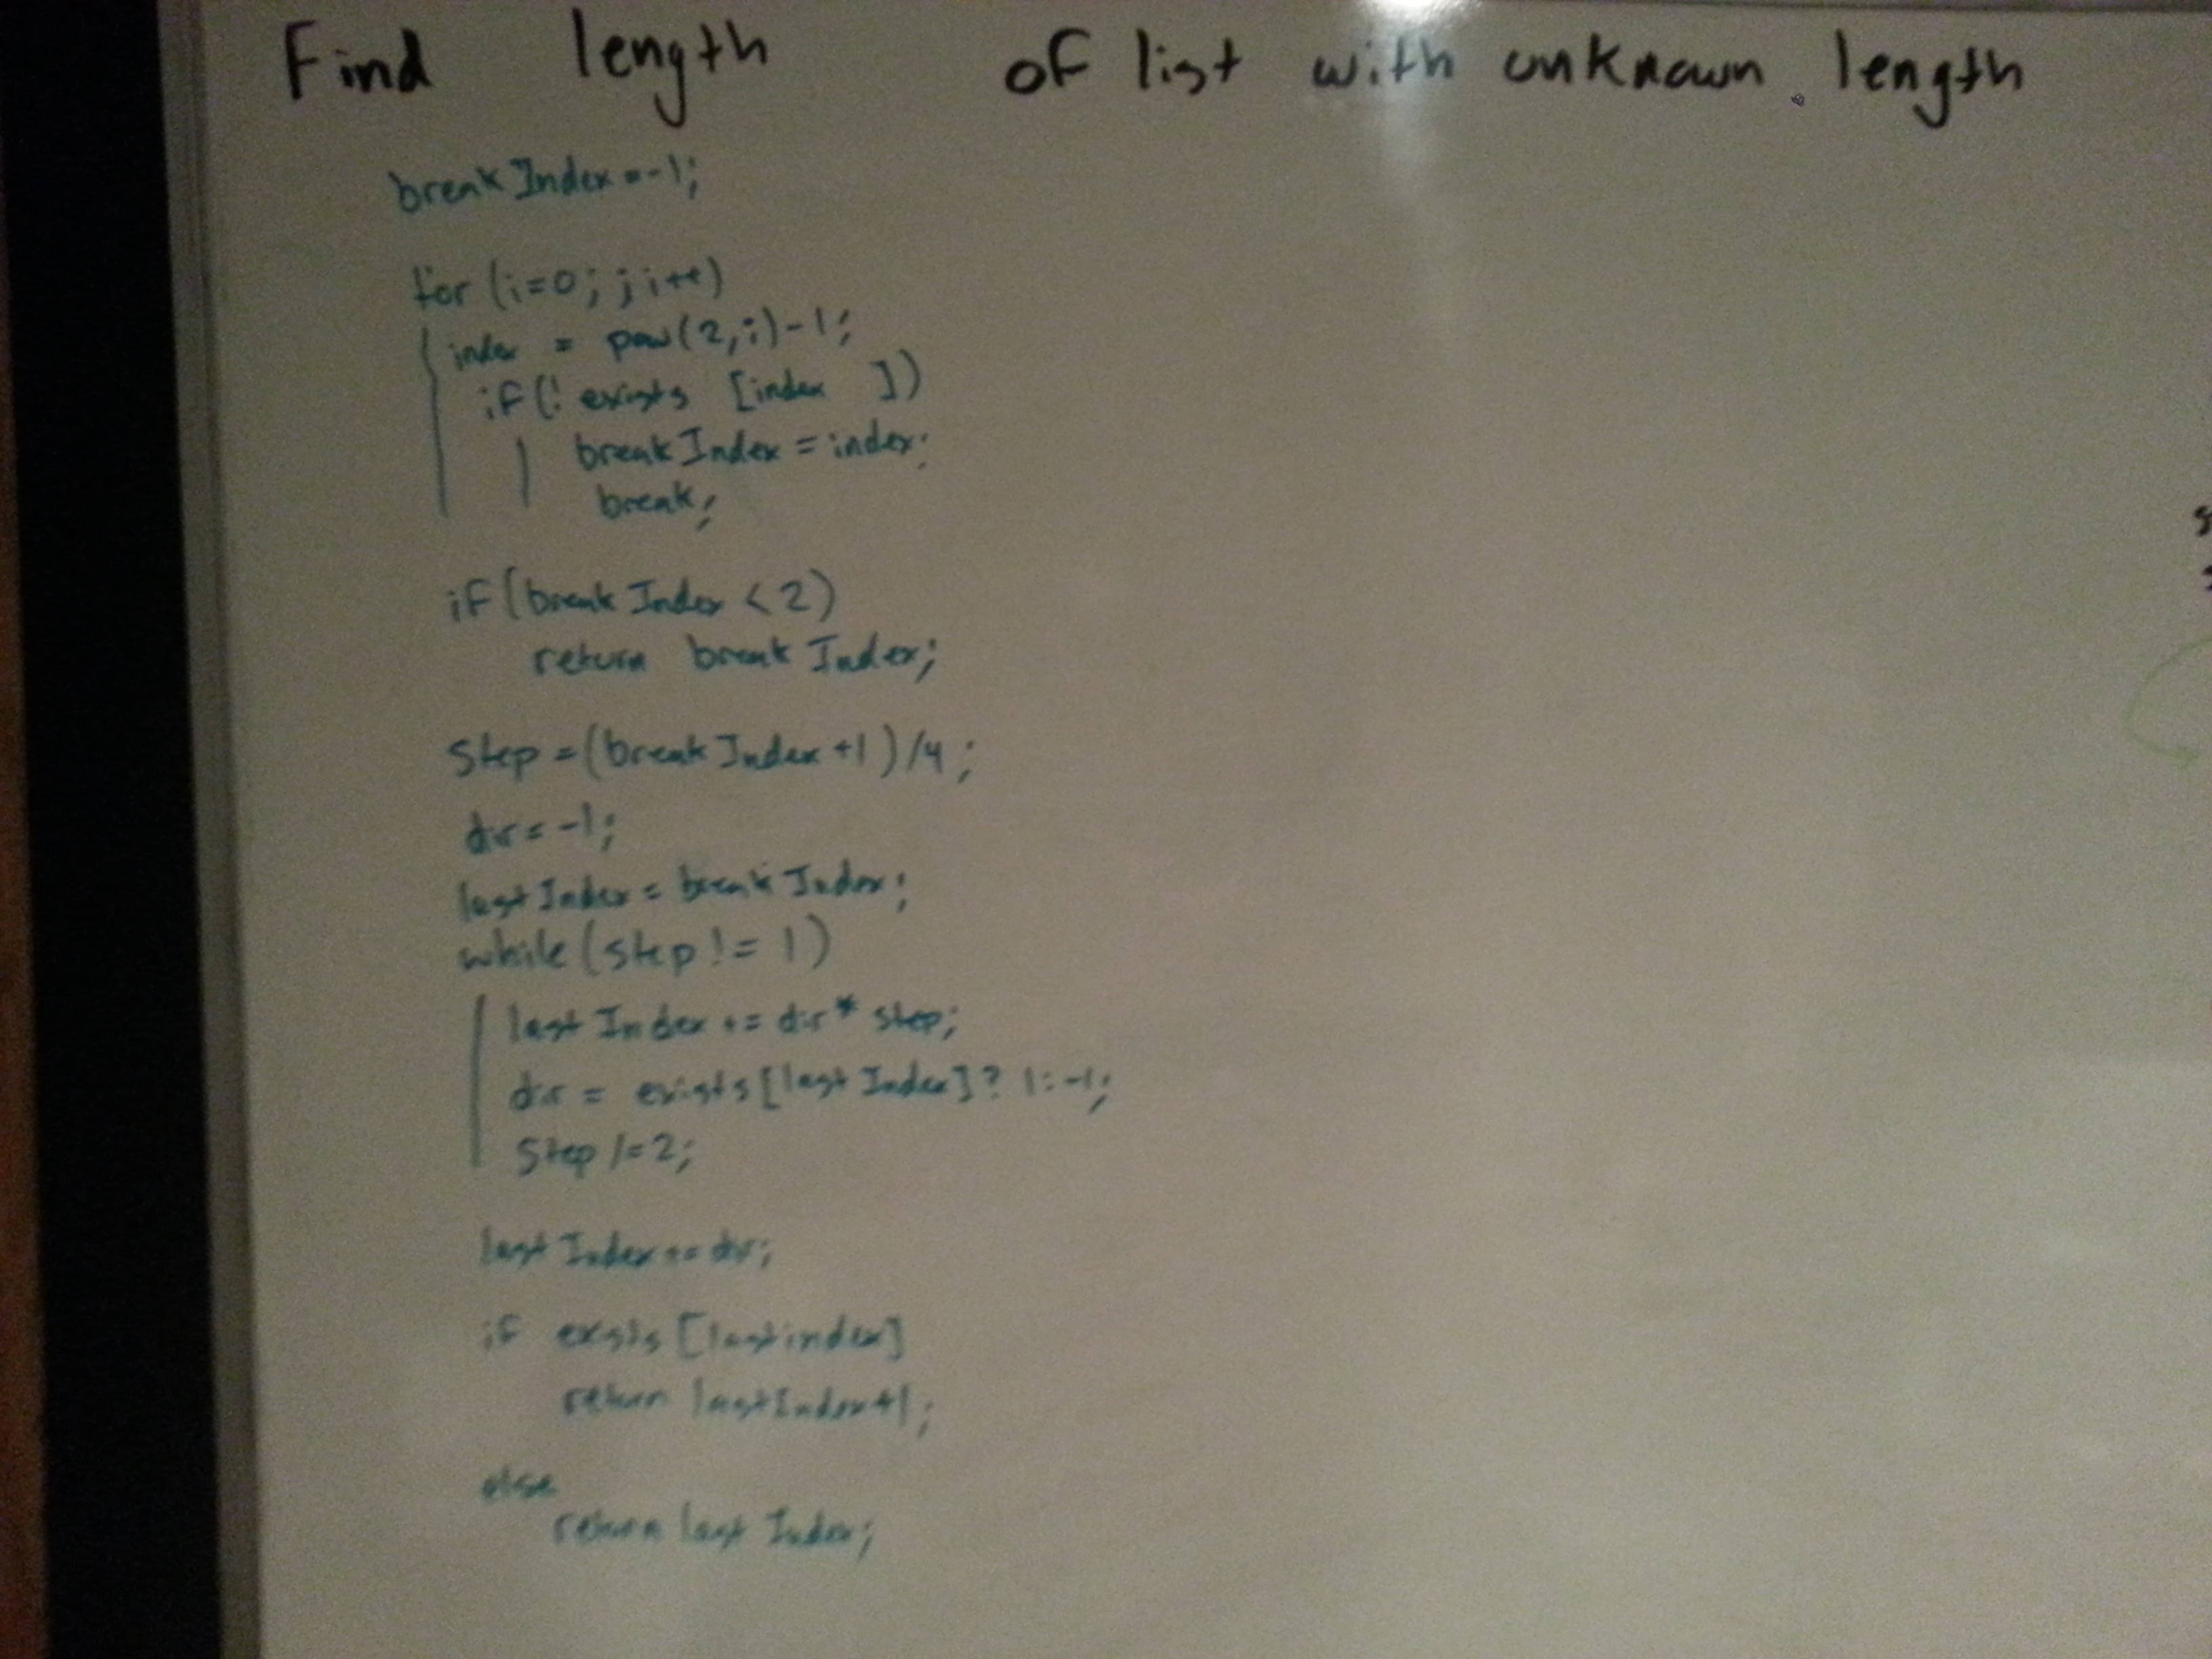 Find length of list with unknown length
breakIndex=-1;
for (i=0; ; i++)
index = pow(2,i)-1;
if(! exists [index ])
breakIndex = index;
break;
if(breakIndex < 2)
return breakIndex;
Step =(breakIndex +1)/4;
dir = -1;
lastIndex = breakIndex;
while (step != 1)
lastIndex += dir * step;
dir = exists[lastIndex]? 1:-1;
Step /=2;
lastIndex += dir;
if exists [lastindex]
return lastIndex+1;
else
return lastIndex;